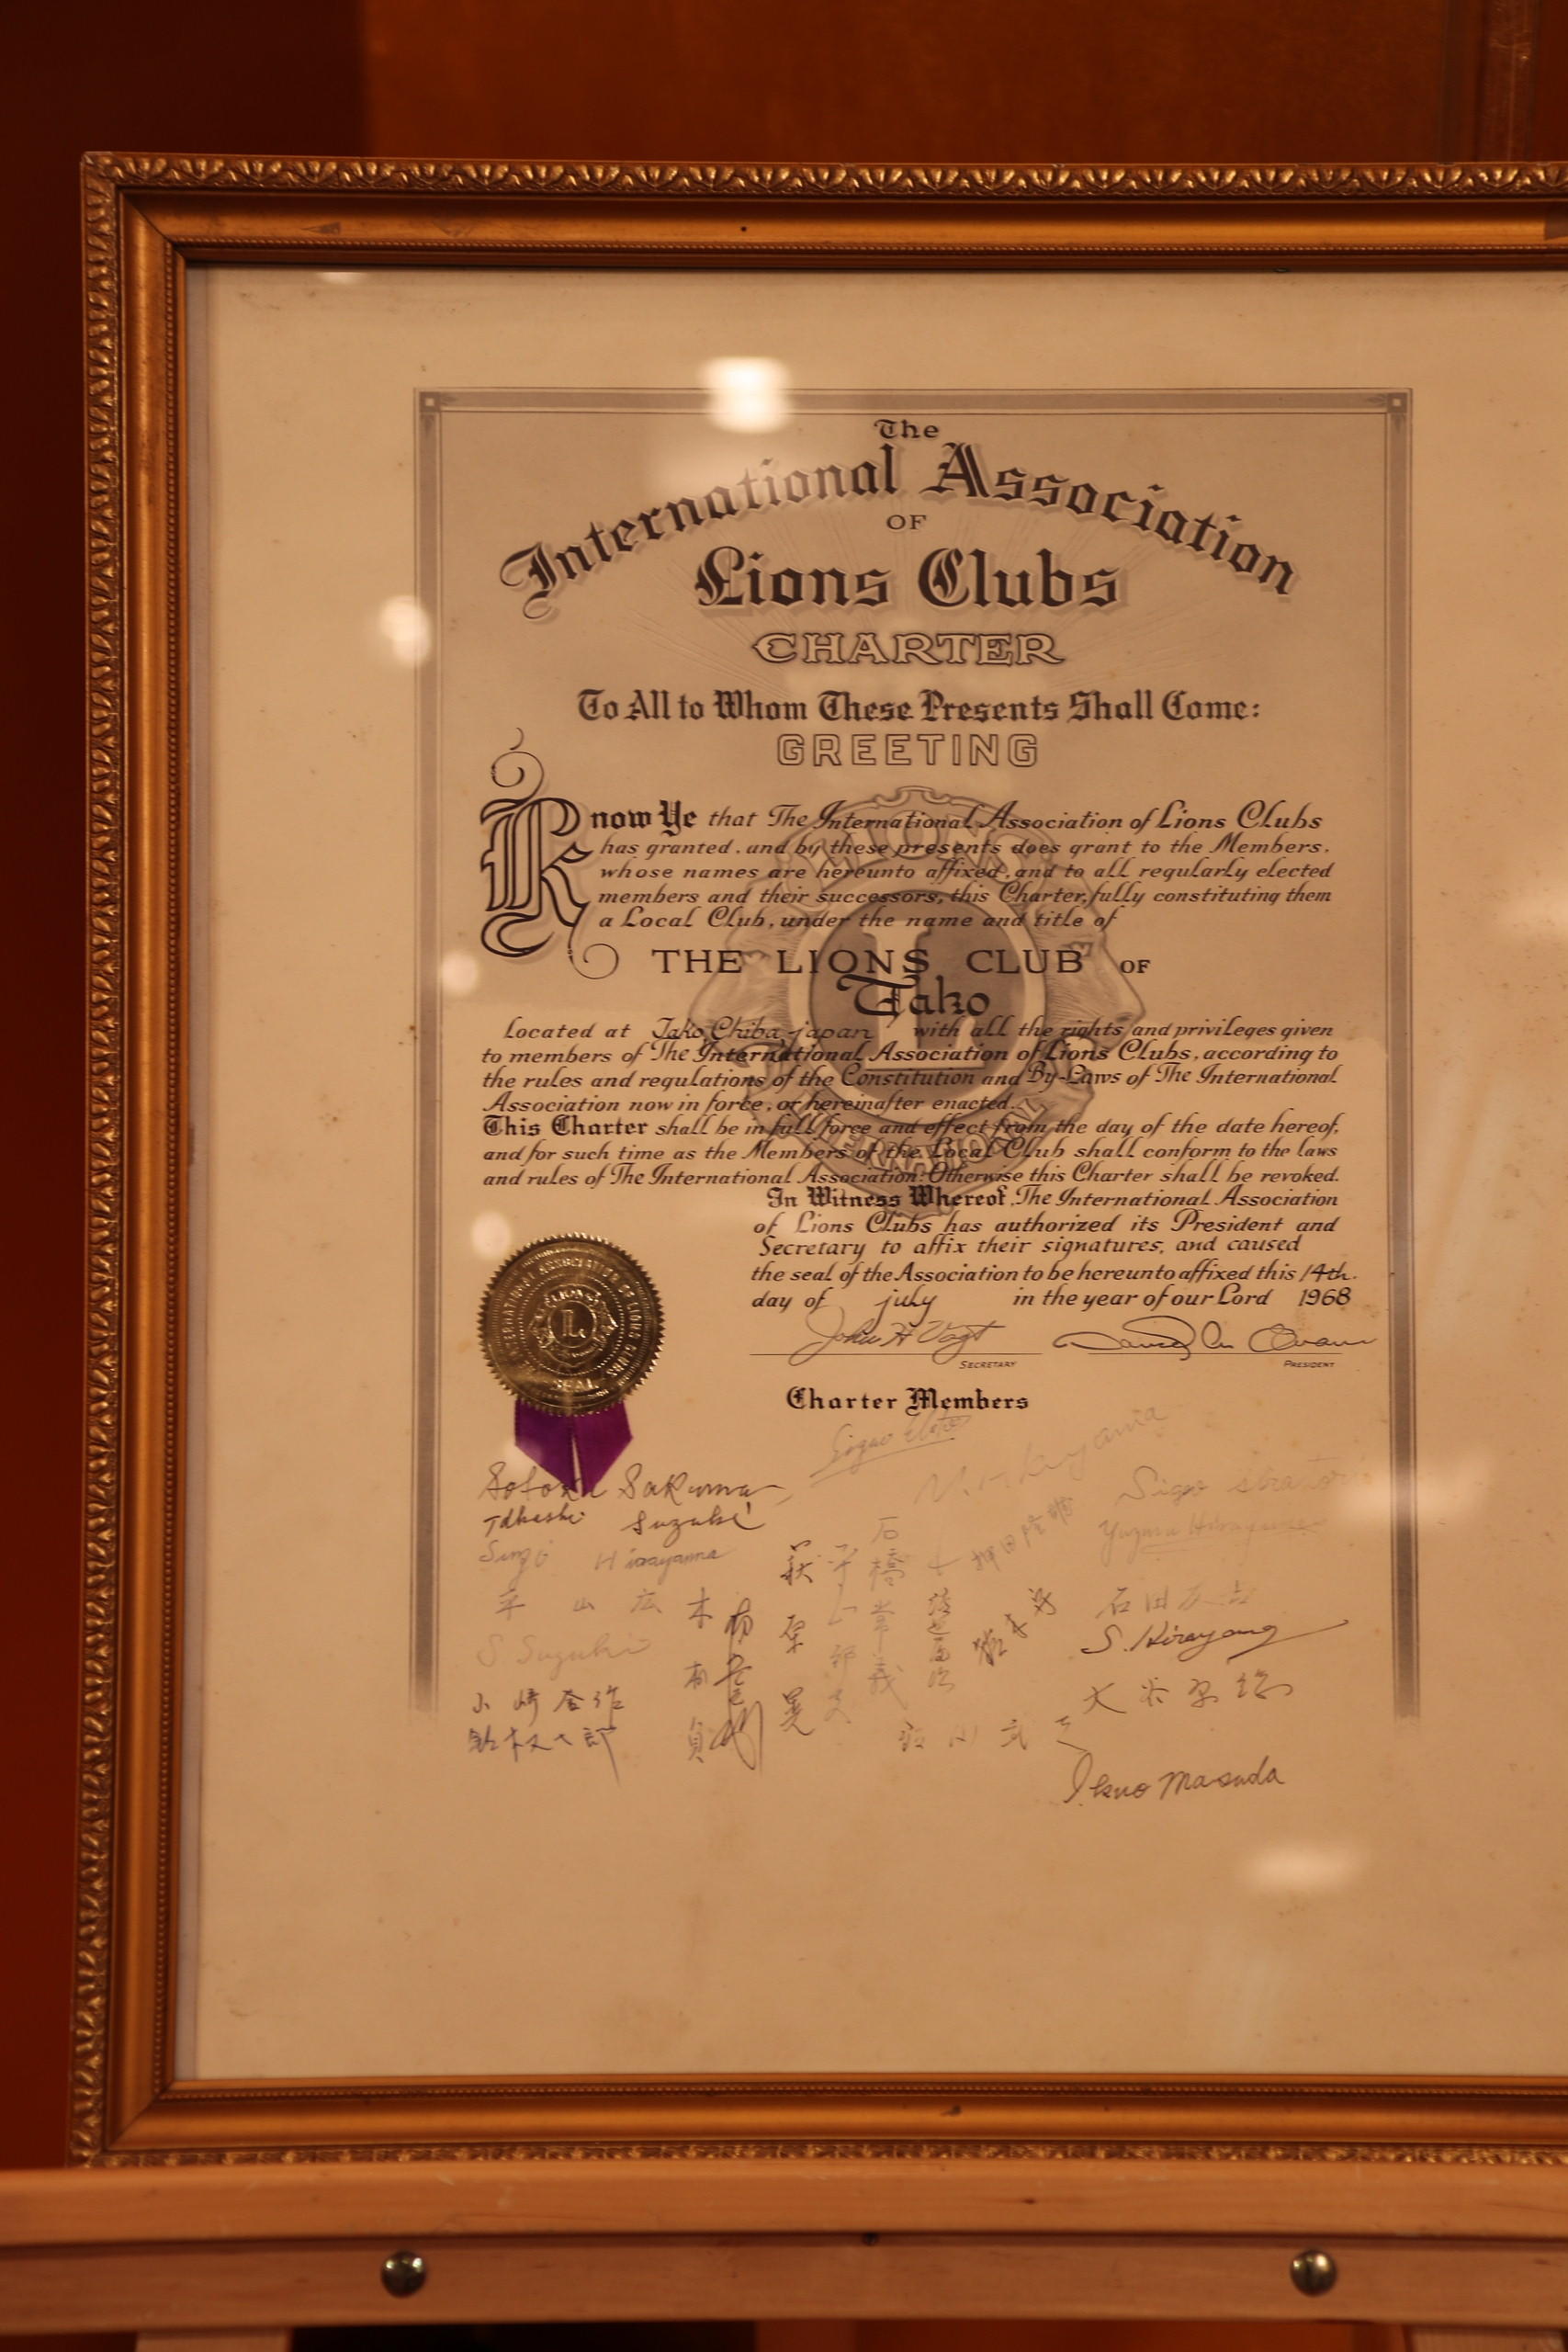 The
International Association
OF
Lions Clubs
CHARTER
To All to Whom These Presents Shall Come:
GREETING
Know Ye that The International Association of Lions Clubs
has granted, and by these presents does grant to the Members,
whose names are hereunto affixed, and to all regularly elected
members and their successors, this Charter, fully constituting them
a Local Club, under the name and title of
THE LIONS CLUB OF
Tako
Located at Tako, Chiba, japan with all the rights and privileges given
to members of The International Association of Lions Clubs, according to
the rules and regulations of the Constitution and By-Laws of The International
Association now in force, or hereinafter enacted.
This Charter shall be in full force and effect from the day of the date hereof,
and for such time as the Members of the Local Club shall conform to the laws
and rules of The International Association: Otherwise this Charter shall be revoked.
In Witness Whereof, The International Association
of Lions Clubs has authorized its President and
Secretary to affix their signatures, and caused
the seal of the Association to be hereunto affixed this 14th.
day of july in the year of our Lord 1968
John H Vogt
SECRETARY PRESIDENT
LIONS
L
INTERNATIONAL
INTERNATIONAL ASSOCIATION OF LIONS CLUBS
LIONS
L
SEAL
Charter Members
Sakuma
Takashi Suzuki
Hirayama
平山広
S Suzuki
石橋常義
S. Hirayama
Ikuo Masuda